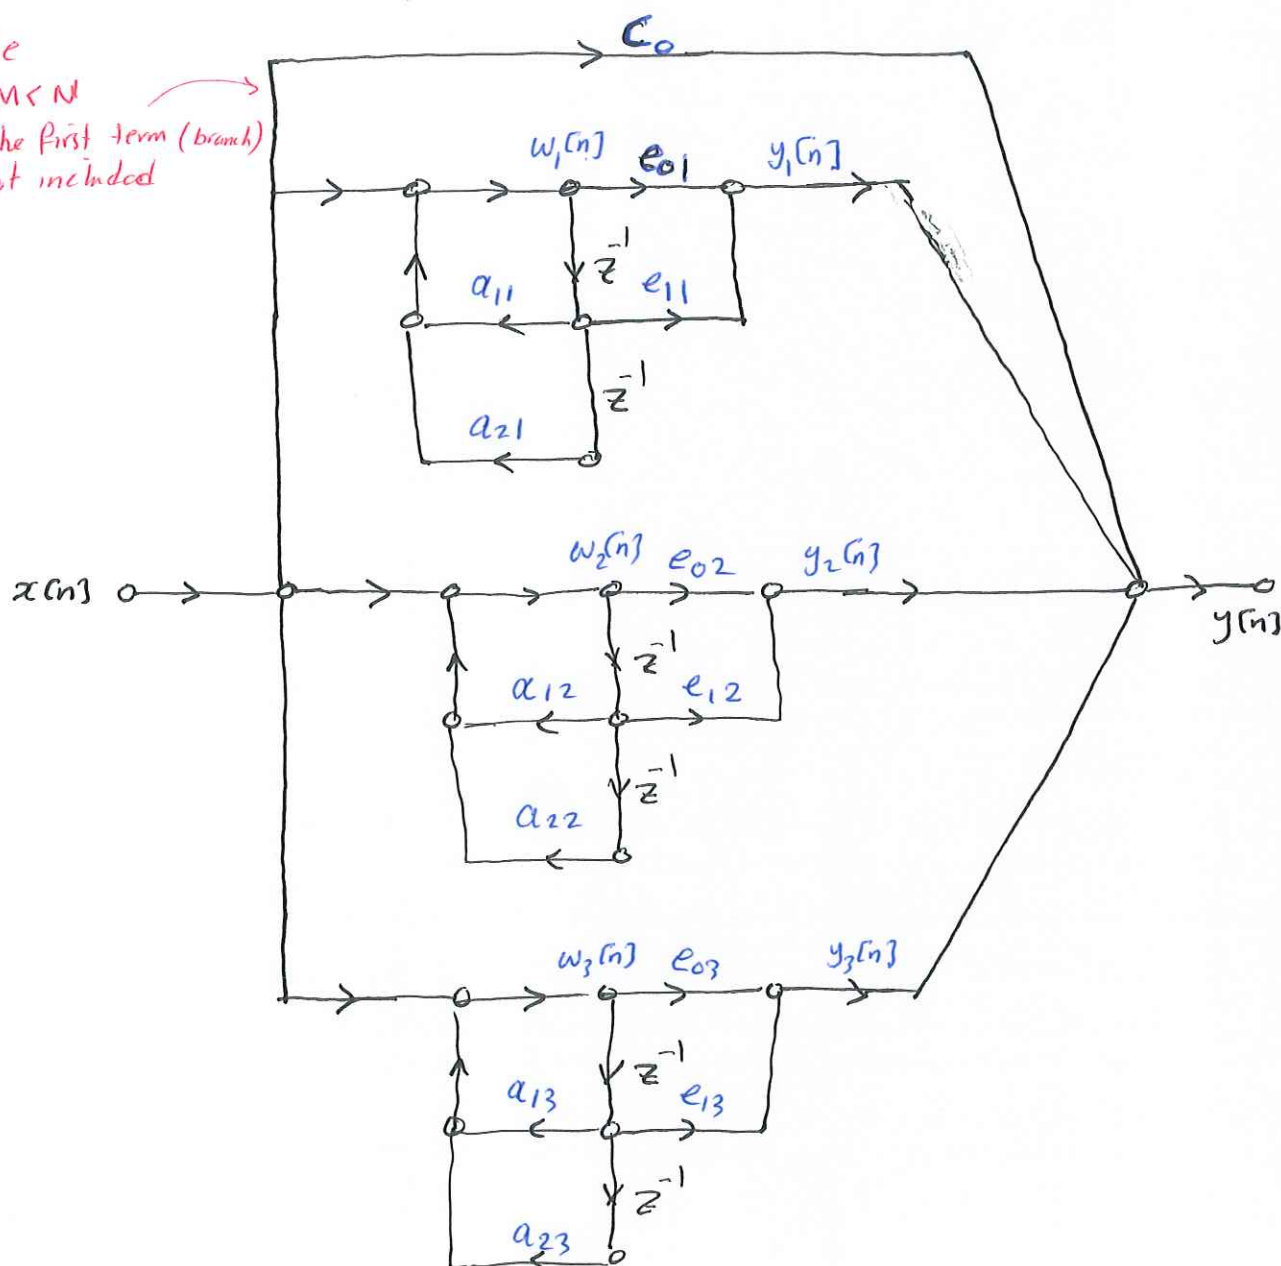 C₀
M<N
the first term (branch)
included
w₁[n] e₀₁ y₁[n]
z⁻¹
a₁₁ e₁₁
z⁻¹
a₂₁
w₂[n] e₀₂ y₂[n]
x[n]
y[n]
z⁻¹
a₁₂ e₁₂
z⁻¹
a₂₂
w₃[n] e₀₃ y₃[n]
z⁻¹
a₁₃ e₁₃
z⁻¹
a₂₃